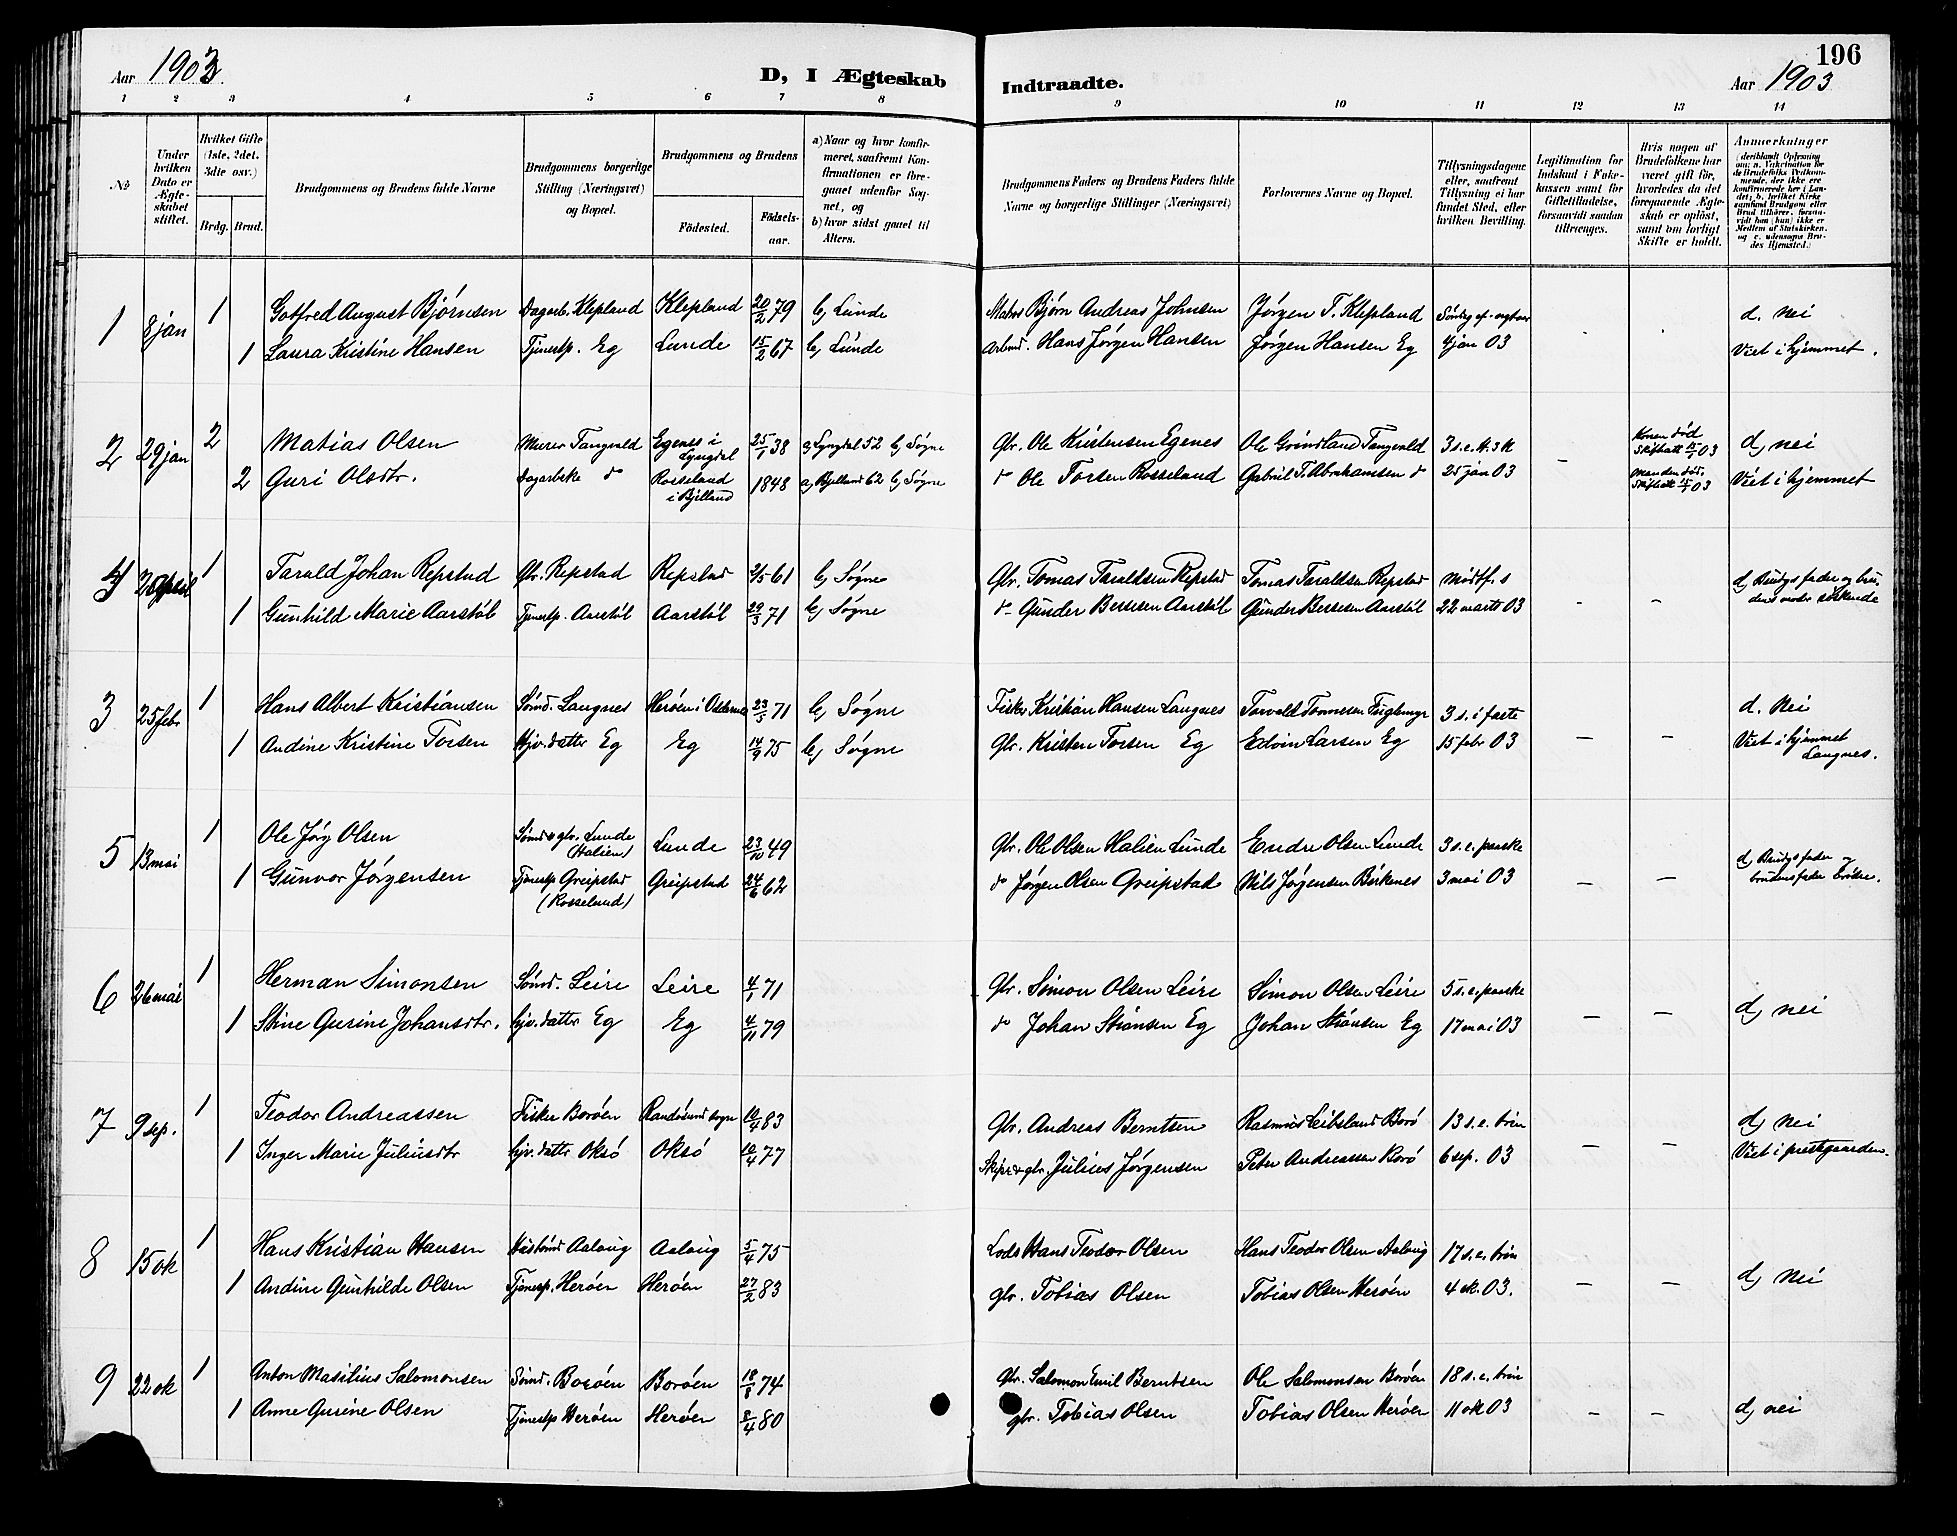 196
Aar 1903.
D, I Ægteskab
Indtraadte.
Aar 1903
1 2 3 4 5 6 7 8 9 10 11 12 13 14
No
Under hvilken Dato er Ægteskabet stiftet.
Hvilket Gifte (1ste, 2det, 3die osv.)
Brdg. Brud.
Brudgommens og Brudens fulde Navne
Brudgommens borgerlige Stilling (Næringsvei) og Bopæl.
Brudgommens og Brudens
Fødested.
Fødselsaar.
a) Naar og hvor konfirmeret, saafremt Konfirmationen er foregaaet udenfor Sognet, og
b) hvor sidst gaaet til Alters.
Brudgommens Faders og Brudens Faders fulde Navne og borgerlige Stillinger (Næringsvei)
Forlovernes Navne og Bopæl.
Tillysningsdagene eller, saafremt Tillysning ei har fundet Sted, efter hvilken Bevilling.
Legitimation for Indskud i Enkekassen samt for Giftetilladelse, forsaavidt saadan tiltrænges.
Hvis nogen af Brudefolkene har været gift før, hvorledes da det foregaaende Ægteskab er opløst, samt om lovligt Skifte er holdt.
Anmærkninger
(deriblandt Oplysning om: a. Vakcination for de Brudefolks Vedkommende, der ikke ere konfirmerede her i Landet; b. hvilket Kirkesamfund Brudgom eller Brud tilhører, forsaavidt han (hun) ikke er Medlem af Statskirken, og c. udensogns Brudes Hjemsted.)
1 8 jan 1 Gotfred August Bjørnsen Dagarb. Klepland Klepland 20/2 79 b) Lunde Matros Bjørn Andreas Johnsen Jørgen T. Klepland d. nei
1 Laura Kristine Hansen Tjenestp. Eg Lunde 15/2 67 b) Lunde Arbmd. Hans Jørgen Hansen Jørgen Hansen Eg 4 jan 03 Viet i hjemmet.
2 29 jan 2 Matias Olsen Murer Tangvald Egenes i Lyngdal 25/1 38 a) Lyngdal 52 b) Søgne Gbr. Ole Kristensen Egenes Ole Grindland Tangvald 3 s.e. H. 3 k Konen død Skifteatt 15/1 03 d) nei
2 Guri Olsdtr. Dagarbske do Rosseland i Bjelland 1848 a) Bjelland 62 b) Søgne do Ole Torsen Rosseland Gabriel T. Abrahamsen do 25 jan 03 – Manden død. Skifteatt 15/1 03 Viet i hjemmet
4 2 april 1 Tarald Johan Repstad Gbr. Repstad Repstad 2/5 61 b) Søgne Gbr. Tomas Taraldsen Repstad Tomas Taraldsen Repstad midtf. s d) Brudgs fader og bru-
1 Gunhild Marie Aarstøl Tjenestp. Aarstøl Aarstøl 20/3 71 b) Søgne do Gunder Bersesen Aarstøl Gunder Bersesen Aarstøl 22 marts 03 – – dens moder søskende
3 25 febr 1 Hans Albert Kristiansen Sømd. Langnes Herøen i Oddernes 23/5 71 b) Søgne Fisker Kristian Hansen Langnes Torvald Tønnesen Fuglemyr 3 s. i faste d. nei
1 Andine Kristine Torsen Hjv. datter Eg Eg 14/9 75 b) Søgne Gbr. Kristen Torsen Eg Edvin Larsen Eg 15 febr 03 – – Viet i hjemmet Langnes.
5 13 mai 1 Ole Jørg Olsen Sømd & gbr. Lunde (Halien) Lunde 23/10 49 Gbr. Ole Olsen Halien Lunde Endre Olsen Lunde 3 s.e. paaske d) Brudgs fader og
1 Gunvor Jørgensen Tjenestp Greipstad (Rosseland) Greipstad 24/6 62 do Jørgen Olsen Greipstad Nils Jørgensen Birkenes 3 mai 03 – – brudens fader brødre.
6 26 mai 1 Herman Simonsen Sømd. Leire Leire 4/1 71 Gbr. Simon Olsen Leire Simon Olsen Leire 5 s.e. paaske
1 Stine Gurine Johansdtr. hjv. datter Eg Eg 4/11 79 do Johan Stiansen Eg Johan Stiansen Eg 17 mai 03 – – d) nei
7 9 sep. 1 Teodor Andreassen Fisker Borøen Randøsund sogn 10/4 83 Gbr. Andreas Berntsen Rasmus Leibsland Borø 13 s.e. trin d) nei
1 Inger Marie Juliusdtr hjv. datter Oksø Oksø 10/4 77 Skipr & gbr. Julius Jørgensen Peter Andreassen Borø 6 sep. 03 – – Viet i prestgaarden.
8 15 ok 1 Hans Kristian Hansen Aaloug Aaloug 5/4 75 Lods Hans Teodor Olsen Hans Teodor Olsen Aaloug 17 s.e. trin
1 Andine Gunhilde Olsen Tjenestp. Herøen Herøen 27/2 83 gbr. Tobias Olsen Tobias Olsen Herøen 4 ok. 03. – – d) nei
9 22 ok 1 Anton Masilius Salomonsen Sømd. Borøen Borøen 18/8 74 Gbr. Salomon Emil Berntsen Ole Salomonsen Borøen 18 s.e. trin
1 Anne Gurine Olsen Tjenestp Herøen Herøen 8/4 80 gbr. Tobias Olsen Tobias Olsen Herøen 11 ok 03 – – d) nei